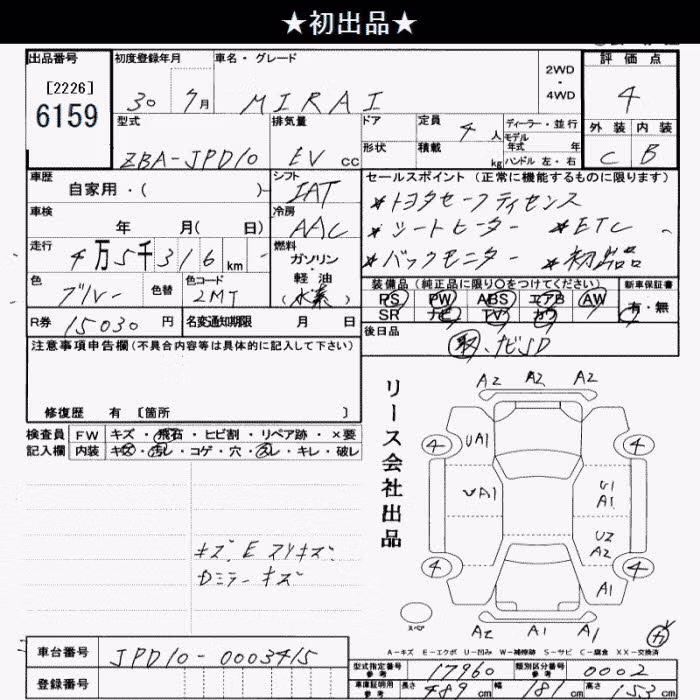 ★初出品★
出品番号 初度登録年月 車名・グレード 2WD・4WD 評価点
[2226]
6159
30 7月 MIRAI 4
型式 排気量 ドア 定員 4人 ディーラー・並行 外装 内装
モデル年式 年
形状 積載 kg ハンドル 左・右
ZBA-JPD10 EV cc C B
車歴 シフト セールスポイント (正常に機能するものに限ります)
自家用・( ) IAT
*トヨタセーフティセンス
車検 冷房
年 月( 日) AAC *シートヒーター *ETC
走行 燃料
4万5千316km ガソリン・軽油 *バックモニター *初出品
(水素)
色 色替 色コード 装備品 (純正品に限り○をつけてください) 新車保証書
ブルー 2MT PS PW ABS エアB AW 有・無
SR ナビ TV カワ
R券 15030円 名変通知期限 月 日 後日品
取、ナビSD
注意事項申告欄 (不具合内容等は具体的に記入して下さい)
修復歴 有 〔箇所 〕
リース会社出品
検査員記入欄 FW キズ・飛石・ヒビ割・リペア跡・×要
内装 キズ・汚レ・コゲ・穴・スレ・キレ・破レ
A2 A2 A2
4 4
UA1
UA1 U1
A1
U2
A2
4 4
A1
スペア
A2 A1 A1
キズ、E スリキズ、
Dミラーキズ
A-キズ E-エクボ U-凹み W-補修跡 S-サビ C-腐食 XX-交換済
車台番号 JPD10-0003415
登録番号
型式指定番号 参考 17960 類別区分番号 参考 0002
車庫証明用 参考 長さ 489cm 幅 181cm 高さ 153cm